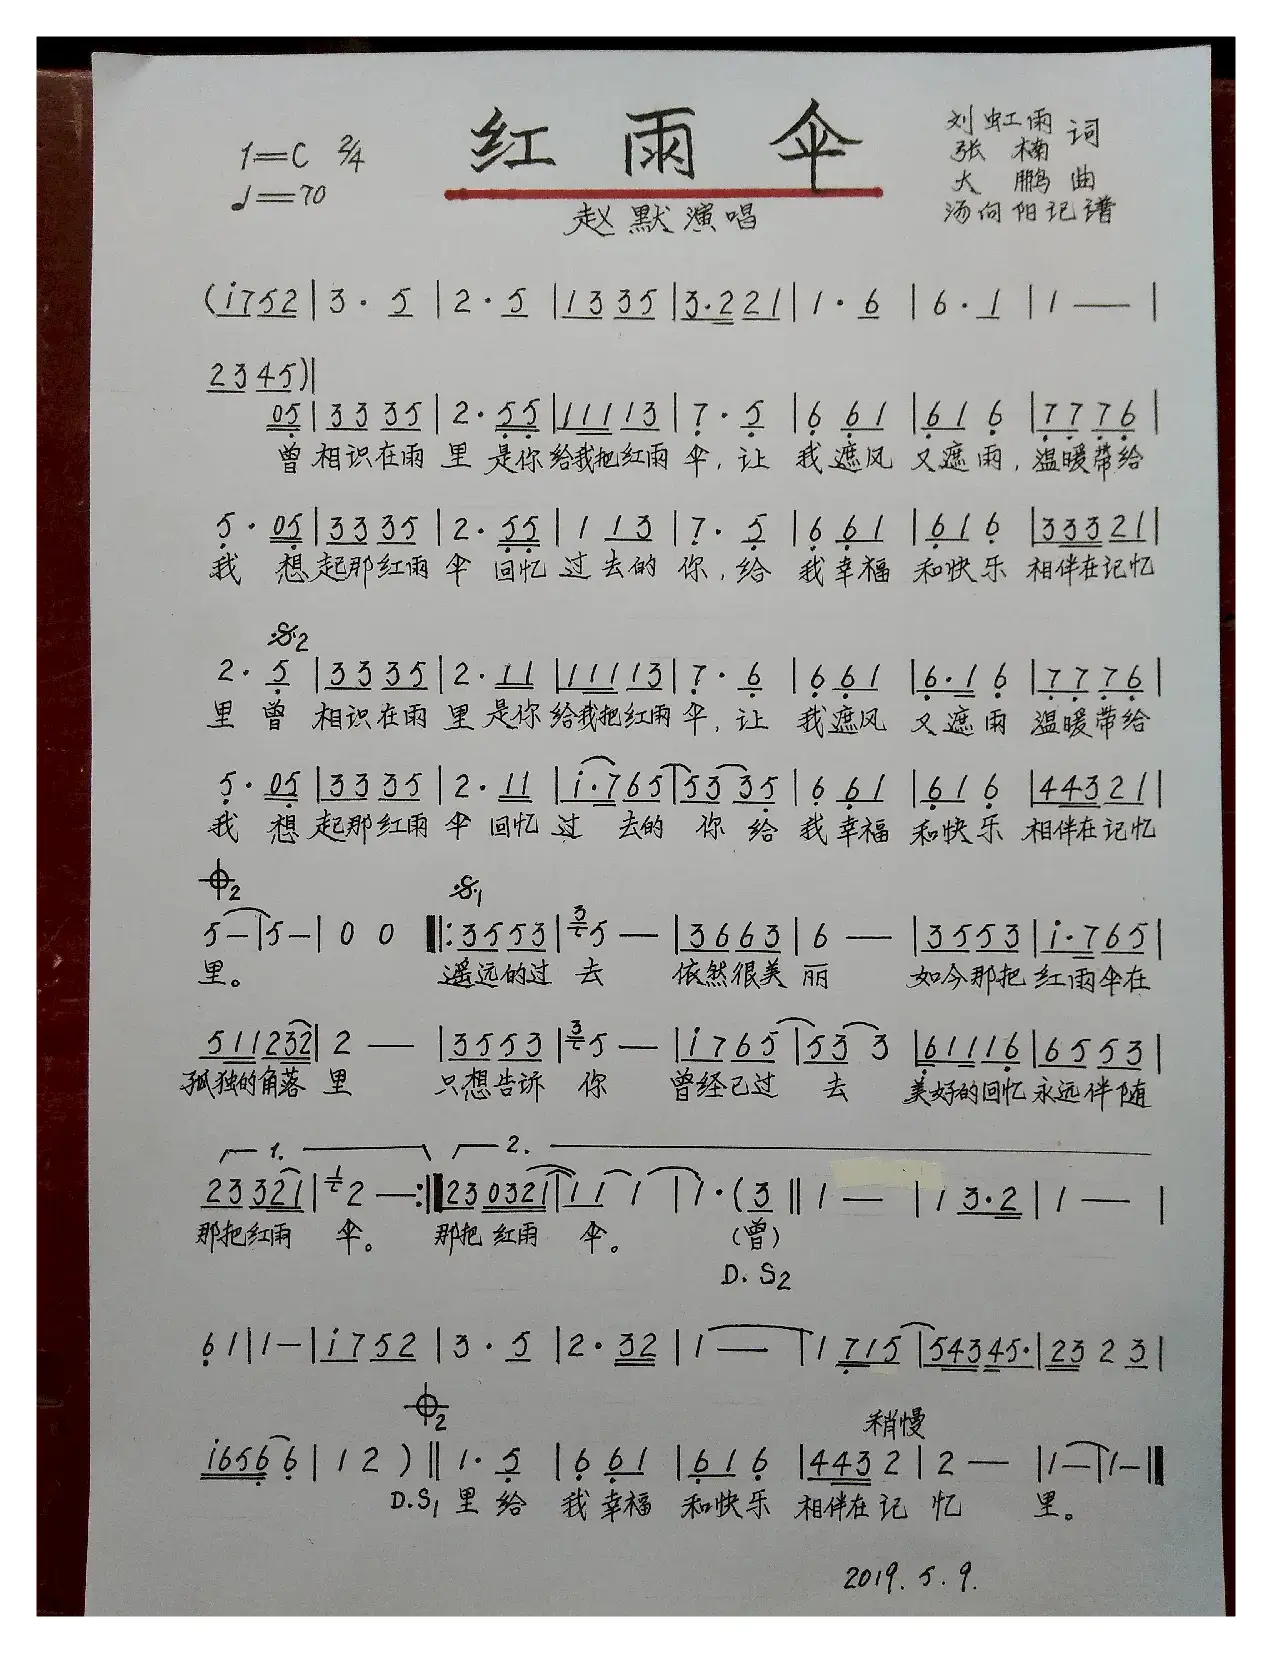 红雨伞
1=C 2/4
♩=70
刘虹雨
张楠 词
大鹏曲
汤向阳记谱
赵默演唱
(i752|3·5|2·5|1335|3·221|1·6|6·1|1—|
2345)|
05|3335|2·55|11113|7·5|661|616|7776|
曾 相识在雨 里 是你给我把红雨 伞,让 我遮风 又遮雨,温暖带给
5·05|3335|2·55|113|7·5|661|616|33321|
我 想 起那红雨 伞 回忆 过去的 你,给 我幸福 和快乐 相伴在记忆
𝄋2
2·5|3335|2·11|11113|7·6|661|6·16|7776|
里 曾 相识在雨 里是你给我把红雨 伞,让 我遮风 又遮雨 温暖带给
5·05|3335|2·11|i·765|5335|661|616|44321|
我 想 起那红雨 伞 回忆 过 去的 你 给 我幸福 和快乐 相伴在记忆
𝄌2 𝄋1
5—|5—|0 0‖:3553|5—|3663|6—|3553|i·765|
里。 遥远的过 去 依然很美 丽 如今那把 红雨伞在
511232|2—|3553|5—|i765|533|61116|6553|
孤独的角落 里 只想告诉 你 曾经已过 去 美好的回忆 永远伴随
1. 2.
23321|2—:‖230321|111|1·(3‖1—|13·2|1—|
那把红雨 伞。 那把红雨 伞。 (曾)
D.S2
61|1—|i752|3·5|2·32|1—|1715|54345·|2323|
𝄌2 稍慢
i6566|12)‖1·5|661|616|4432|2—|1—|1—‖
D.S1 里 给 我 幸福 和快乐 相伴在记 忆 里。
2019.5.9.